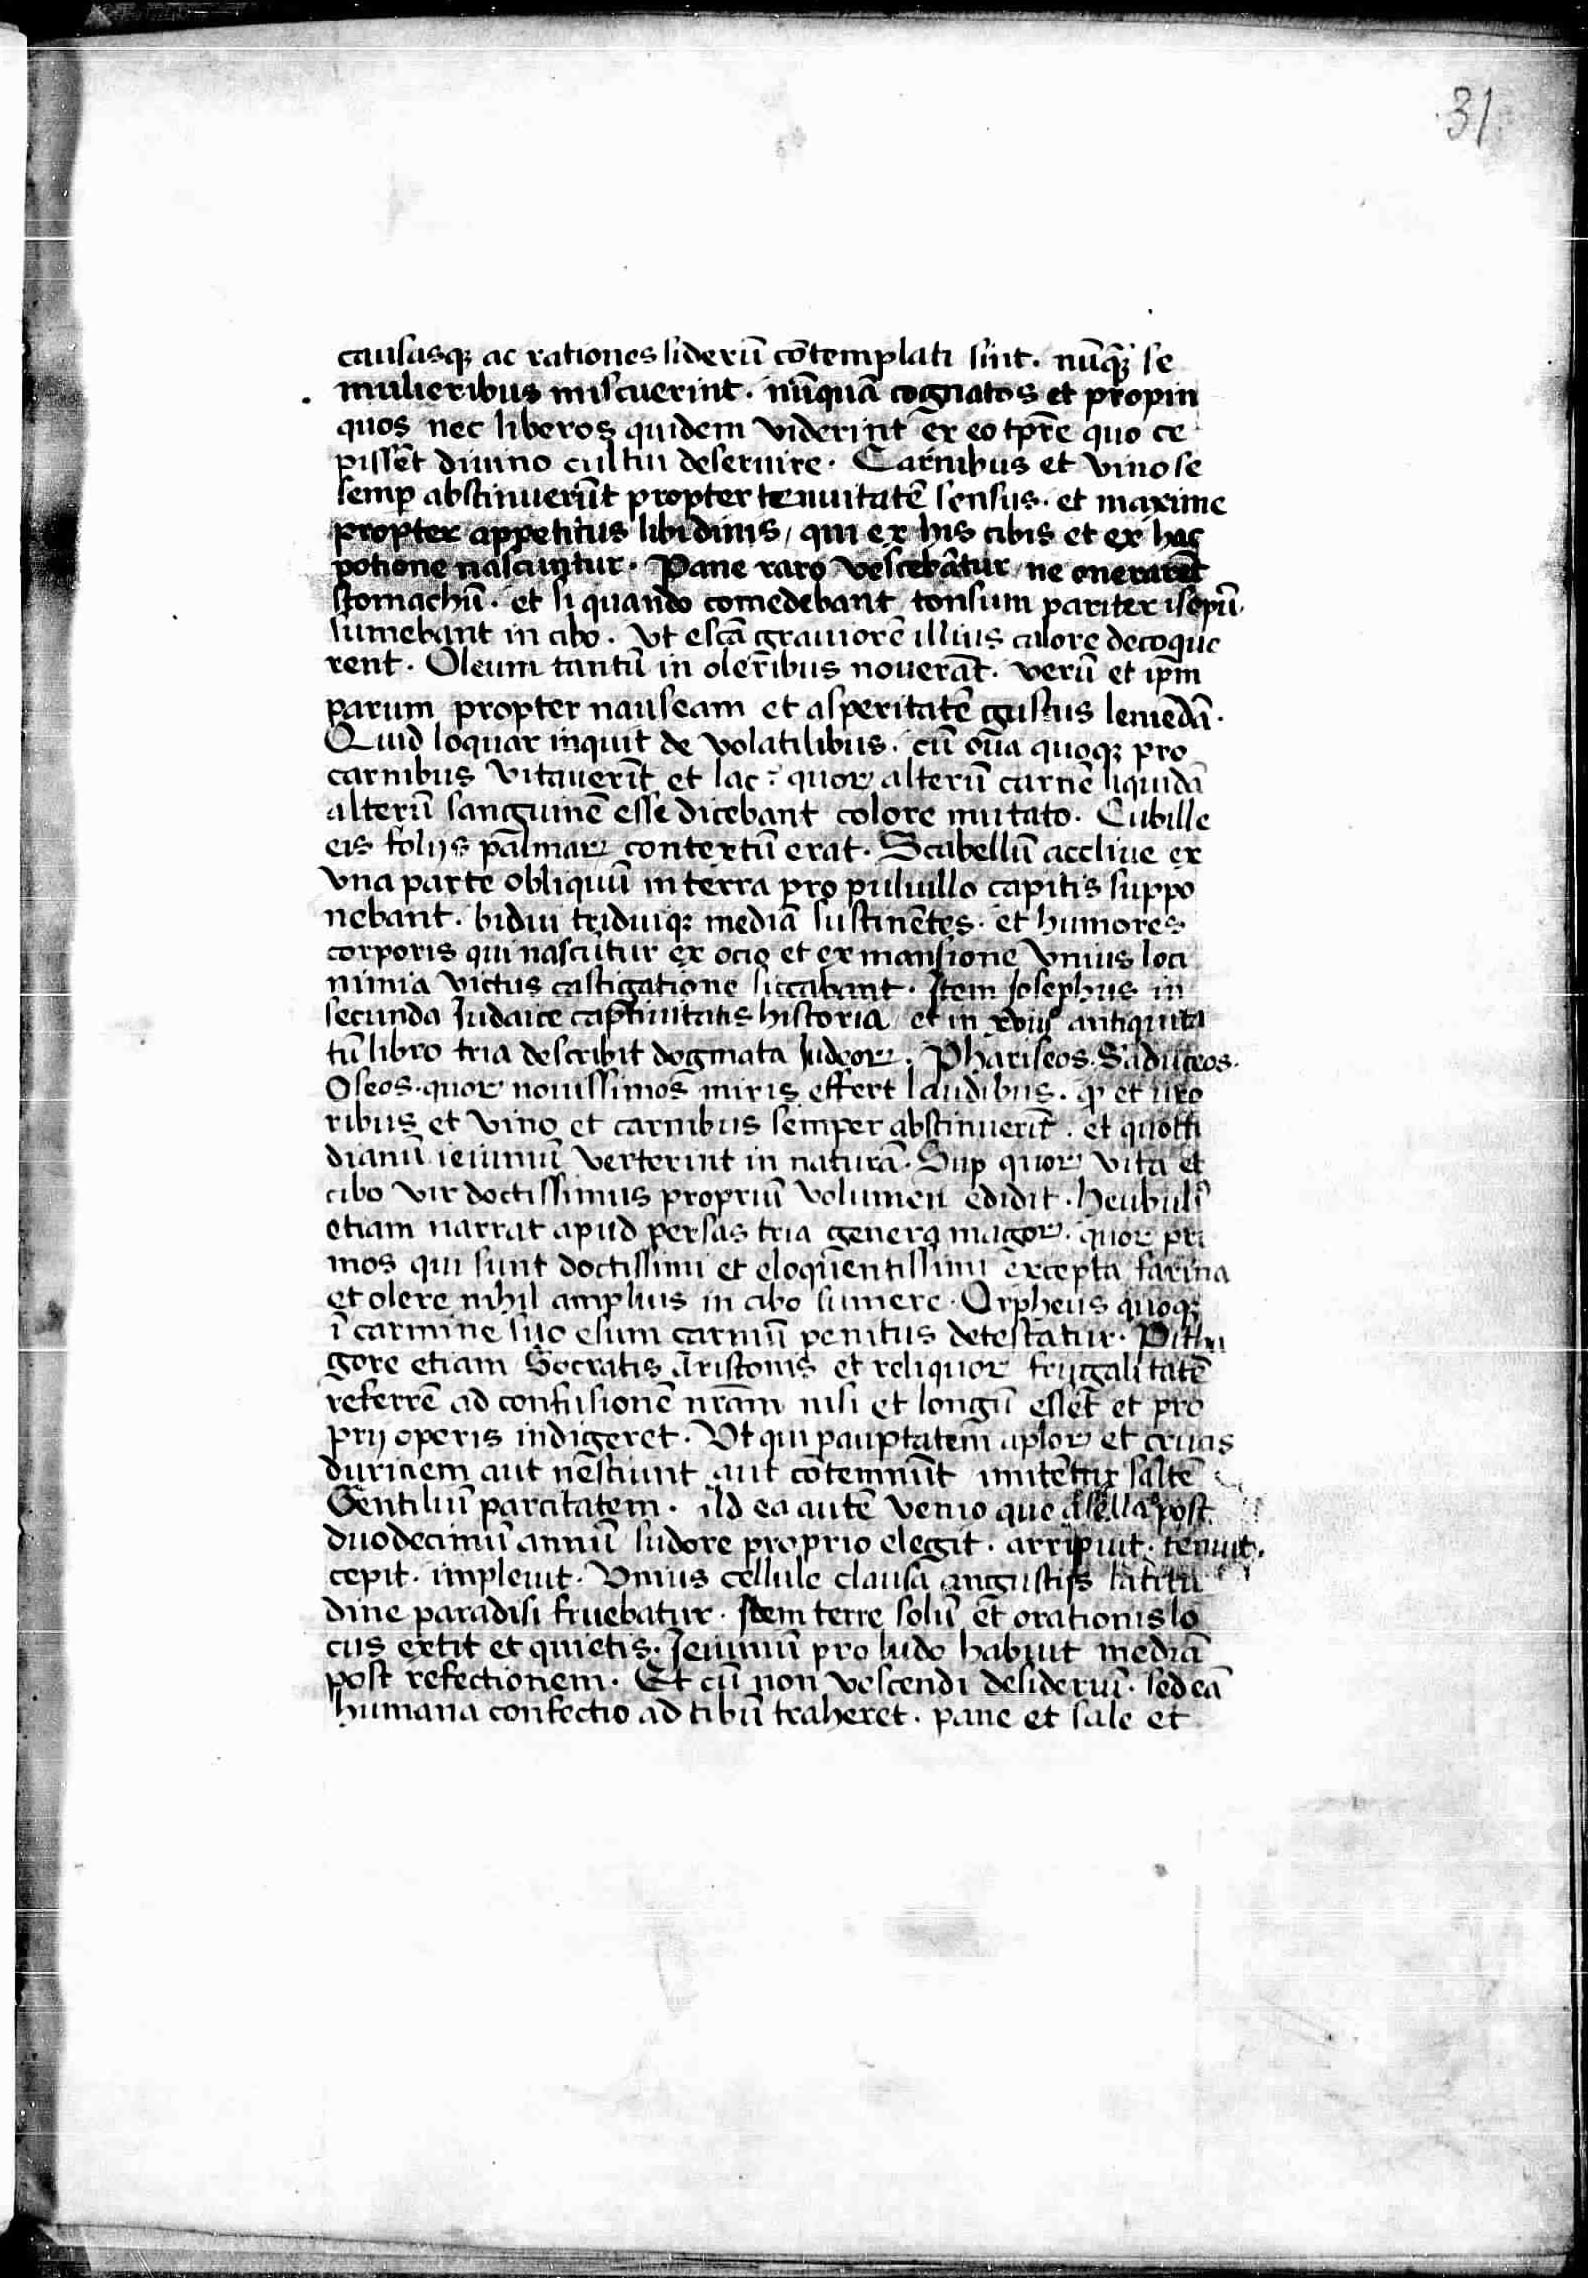 31
causasqꝫ ac rationes siderū cōtemplati sint. nūq̄ȝ se
mulieribus miscuerint. nūquā cognatos et propin
quos nec liberos quidem viderint ex eo tp̄re quo ce
pissēt diuino cultui deseruire. Carnibus et vino se
semꝑ abstinuerūt propter tenuitatē sensus. et maxime
propter appetitus libidinis / qui ex his cibis et ex hac
potione nascuntur. Pane raro vescebātur / ne onerarēt
stomachū. et si quando comedebant / tonsum pariter isopū
sumebant in cibo. Vt escā grauiorē illius calore decoque
rent. Oleum tantū in oleribus nouerāt. verū et ip̄m
parum propter nauseam et asperitatē gustus leniēdā.
Quid loquar inquit de volatilibus. cū oua quoqꝫ pro
carnibus vitauerīt et lac? quoꝝ alterū carnē liquidā
alterū sanguinē esse dicebant colore mutato. Cubille
eis folijs palmaꝝ contextū erat. Scabellū accliue ex
vna parte obliquū in terra pro puluillo capitis suppo
nebant. bidui triduiqꝫ mediā sustinētes. et humores
corporis qui nascūtur ex ocio et ex mansione vnius loci
nimia victus castigatione siccabant. Item Josephus in
secunda Judaice captiuitatis historia / et in xviijͦ antiquita
tū libro tria describit dogmata Judeoꝝ. Phariseos. Saduceos.
Oseos. quoꝝ nouissimos miris effert laudibus. ꝙ et uxo
ribus et vino et carnibus semper abstinuerīt. et quotti
dianū ieiuniū verterint in naturā. Suꝑ quoꝝ vita et
cibo vir doctissimus propriū volumen edidit. heubulꝰ
etiam narrat apud persas tria genera magoꝝ. quoꝝ pri
mos qui sunt doctissimi et eloquentissimi excepta farina
et olere nihil amplius in cibo sumere. Orpheus quoqꝫ
ī carmine suo esum carniū penitus detestatur. Pitha
gore etiam Socratis Aristonis et reliquoꝝ frugalitatē
referrē ad confusionē nr̄am nisi et longū esset et pro
prij operis indigeret. Vt qui pauꝑtatem apl̄oꝝ et crucis
duriciem aut nesciunt aut cōtemnūt imitentur saltē
Gentiliū parcitatem. Ad ea autē venio que asella post
duodecimū annū sudore proprio elegit. arripuit. tenuit.
cepit. impleuit. Vnius cellule clausa angustijs latitu
dine paradisi fruebatur. Idem terre solū et orationis lo
cus extit et quietis. Jeiuniū pro ludo habuit mediā
post refectionem. Et cū non vescendi desideriū. sed eā
humana confectio ad cibū traheret. pane et sale et